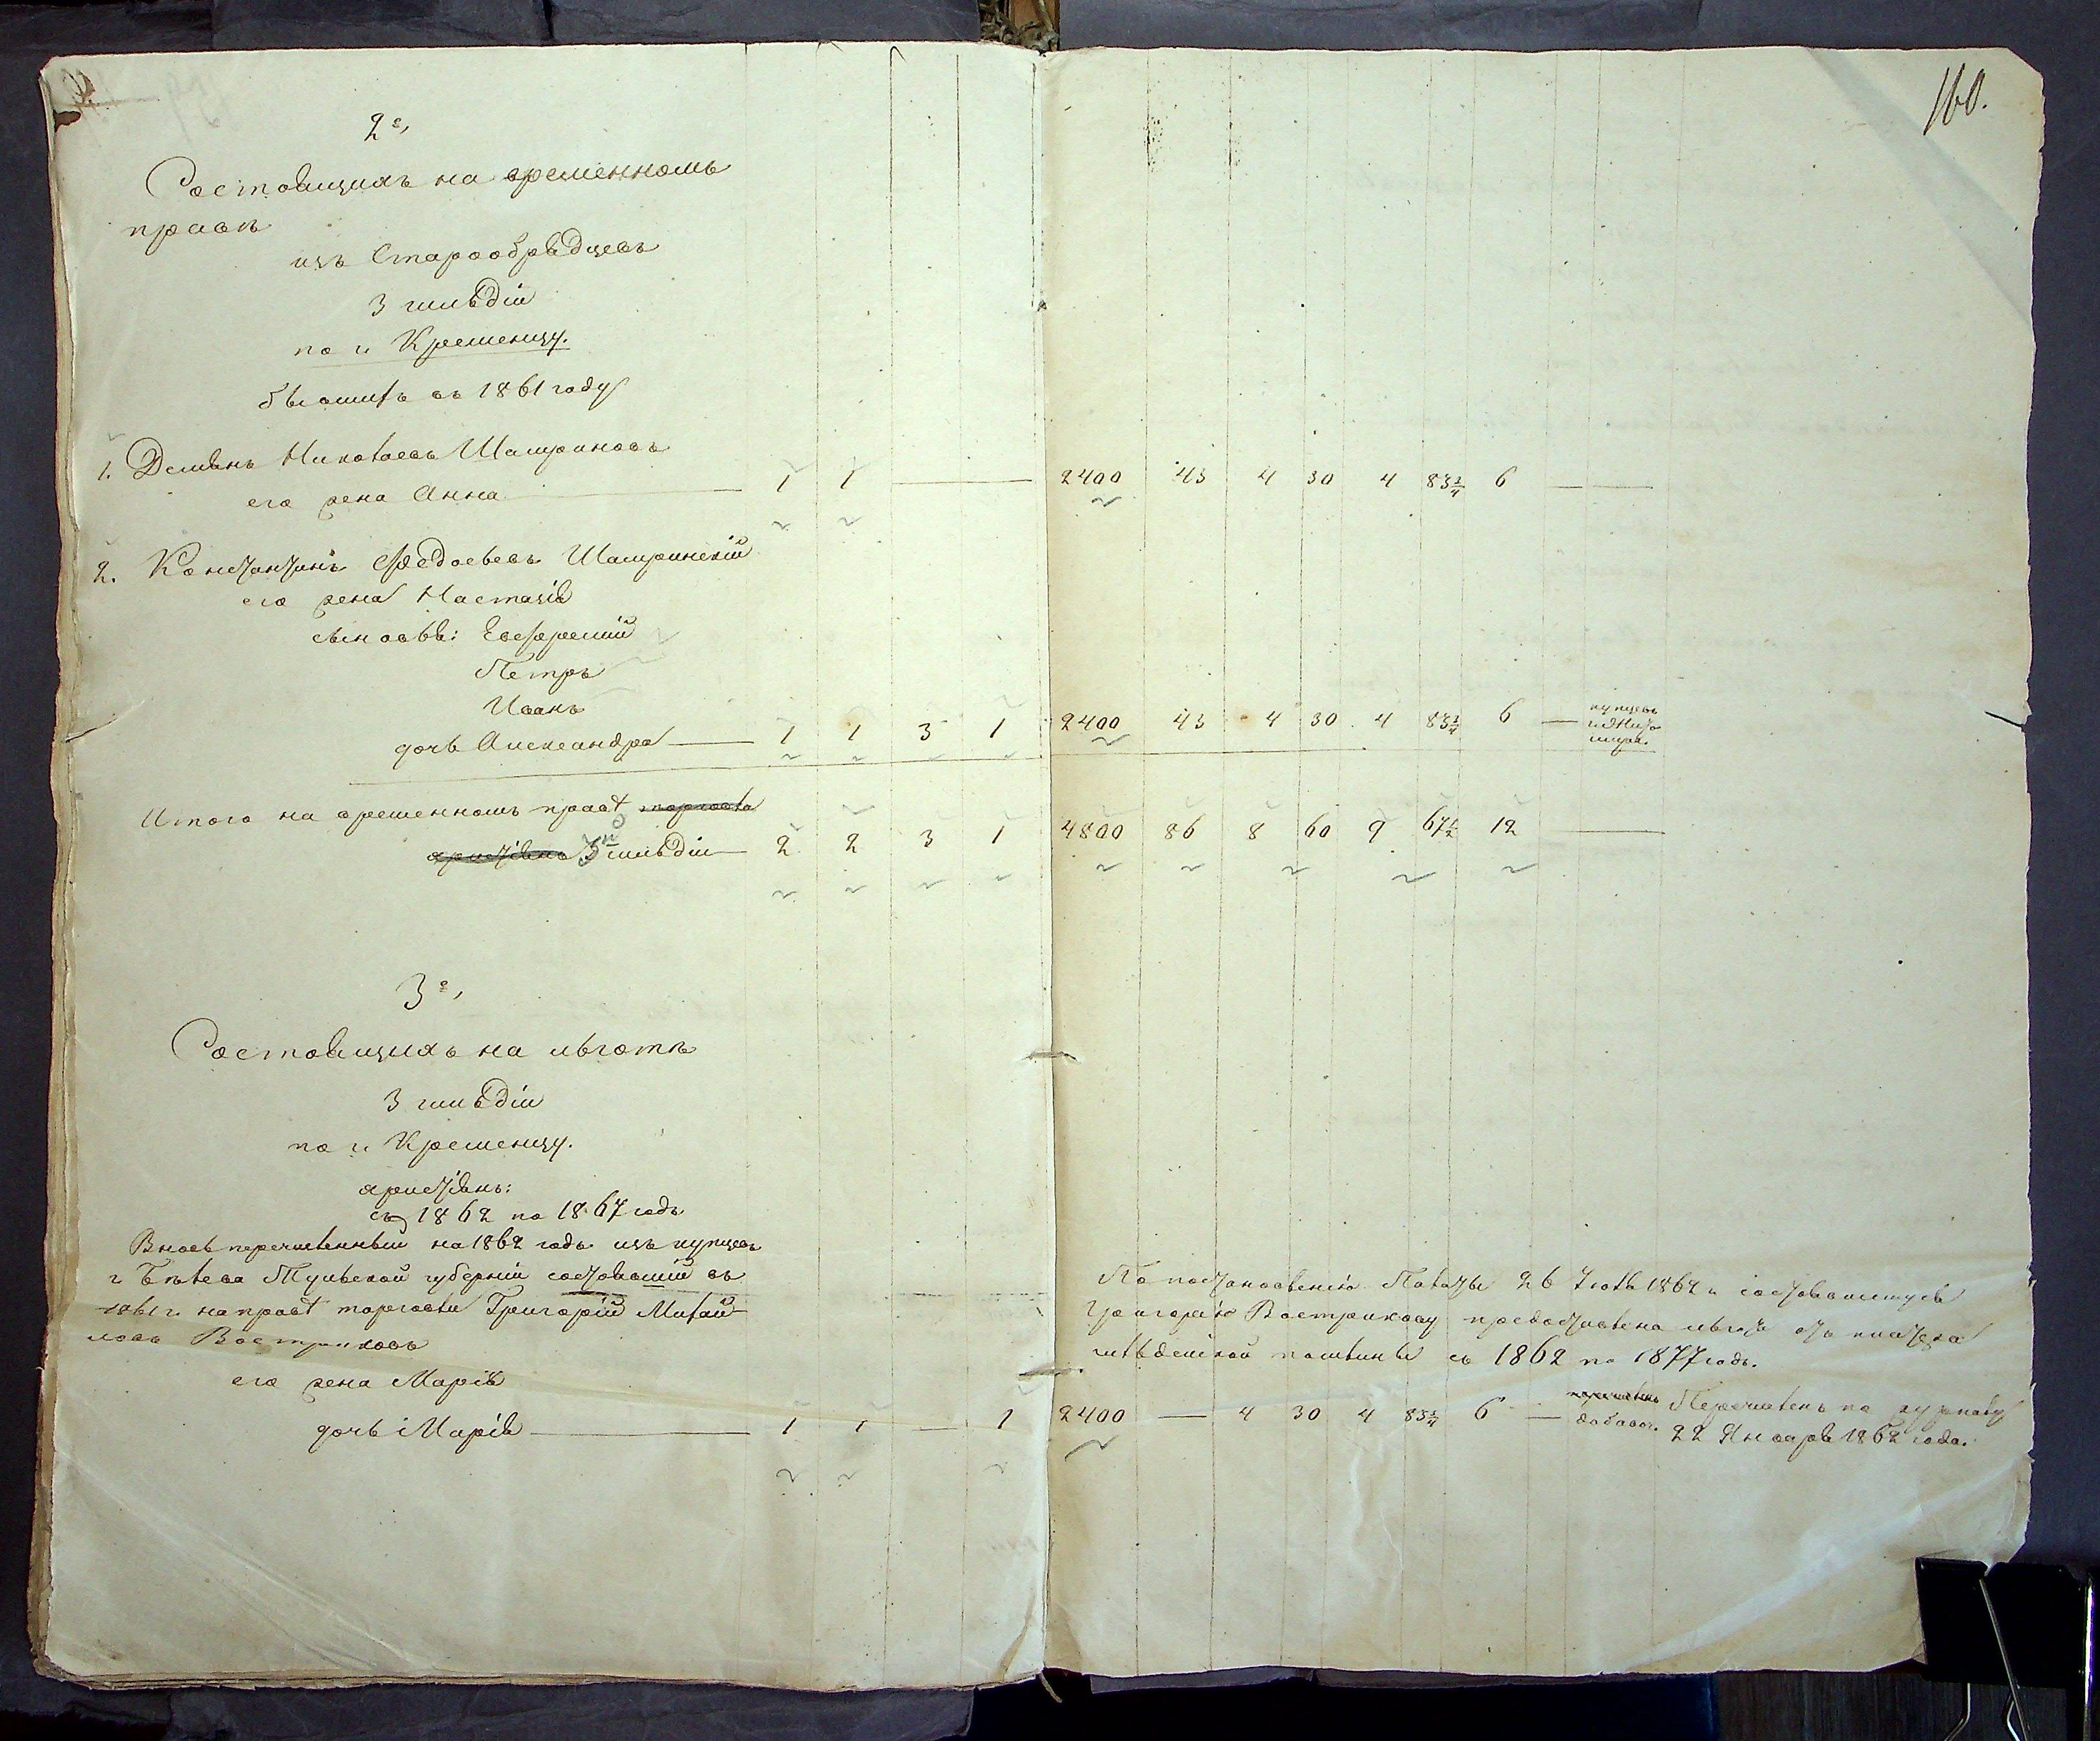 160.
2е,
Состоящихъ на временномъ
правѣ
изъ Старообрядцевъ
3 гильдіи
по г. Кременцу.
бывшихъ въ 1861 году
1. Демьянъ Николаевъ Шамриновъ
его жена Анна 1 1 — 2400 43 4 30 4 83¾ 6 — —
2. Константинъ Шамринскій
его жена Настасія
сыновья: Евстратій
Петръ
Иванъ
дочь Александра — 1 1 3 1 2400 43 4 30 4 83¾ 6 — купцевъ
Итого на временномъ правѣ торговли
3й гильдіи — 2 2 3 1 4800 86 8 60 9 67½ 12 —
3е,
Состоящихъ на льготѣ
3 гильдіи
по г. Кременцу.
христіянъ:
съ 1862 по 1867 годъ
Вновь перечисленный на 1862 годъ изъ купцевъ
г. Бѣлева Тульской губерніи состоявшій въ
1861 г. на правѣ торговли Григорій Михай-
ловъ Востриковъ
его жена Марія
дочь Марія — 1 1 — 1 2400 — 4 30 4 83¾ 6 —
По постановленію Палаты 26 Іюля 1862 г. состоявшемуся
Григорію Вострикову предоставлена льгота отъ платежа
гильдейской пошлины съ 1862 по 1877 годъ.
Перечисленъ по журналу
22 Января 1862 года.